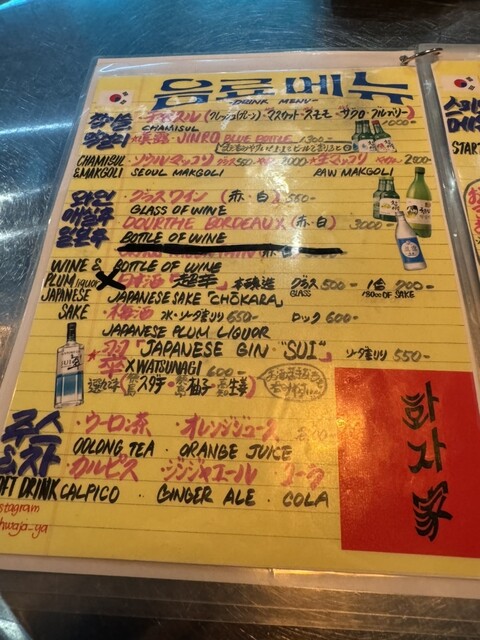 음료메뉴
-DRINK MENU-
참이슬 ・チャミスル (フレッシュグレープ・マスカット・スモモ・ザクロ・グレープフルーツ) 1000-
CHAMISUL
막걸리 ・JINRO BLUE BOTTLE 1300-
CHAMISUL ・ソウルマッコリ グラス500- 2000- ・生マッコリ 2800-
&MAKGOLI SEOUL MAKGOLI RAW MAKGOLI
와인 ・グラスワイン (赤・白) 560-
GLASS OF WINE
매실주 DOURTHE BORDEAUX (赤・白) 3000-
일본주 BOTTLE OF WINE
WINE & BOTTLE OF WINE
PLUM LIQUOR 日本酒「超辛」本醸造 グラス 500- 1合 700-
GLASS 180cc OF SAKE
JAPANESE JAPANESE SAKE "CHŌKARA"
SAKE ・梅酒 水・ソーダ割り 550- ロック 600-
JAPANESE PLUM LIQUOR
★翠「JAPANESE GIN "SUI" ソーダ割り 550-
×WATSUNAGI 600-
スダチ・柚子・生姜
주스 ・ウーロン茶 ・オレンジジュース
&차 OOLONG TEA ・ORANGE JUICE
・カルピス ・ジンジャエール ・コーラ
FT DRINK CALPICO ・GINGER ALE ・COLA
stagram
hwaja_ya
화자家
START